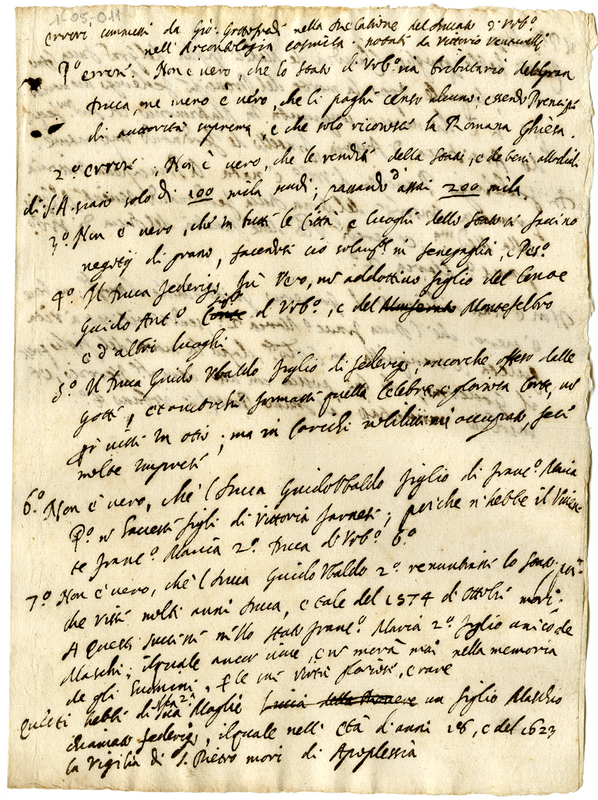 1.05.011
Errori commessi da Gio: nella Relatione del Ducato d'Urb.º
nell' Arcontologia Cosmica. notati da Vittorio Venturelli
P.º errore. Non è vero, che lo Stato di Urb.º sia tributario del Gran
Duca, ne meno è vero, che li paghi censo alcuno, essendo Prencipe
di autorità suprema, e che solo riconosce la Romana Chiesa.
2.º errore. Non è vero, che le rendite della Stato, e de beni allodiali
di S.A. siano solo di 100 mila scudi; passando d'assai 200 mila.
3.º Non è vero, che in tutti le Città e luoghi dello Stato si faccino
negotij di grano, facendosi ciò in Senegaglia, e Pes.º
4.º Il Duca Federigo fù vero, nò addottivo figlio del Conte
Guido Ant.º Conte d'Urb.º, e del Monferrato Montefeltro
e d'altri luoghi
5.º Il Duca Guido Ubaldo figlio di Federigo, ancorche offeso dalle
gotte, et ancorche formasse quella celebre e gloriosa Corte, nò
visse in otio; ma in carichi militari occupato, fece
molte imprese
6.º Non è vero, che il Duca GuidoUbaldo figlio di Franc.º Maria
P.º nò facesse figli di Vittoria Farnese; perche n'hebbe il Vivente
Franc.º Maria 2.º Duca d'Urb.º 6.º
7.º Non è vero, che il Duca GuidoUbaldo 2.º renuntiasse lo Stato,
che visse molti anni Duca, e tale del 1574 di Ottobre morì.
A Questi successe nello stato Franc.º Maria 2.º figlio unico de
Maschi; il quale ancor vive, e nò morà mai nella memoria
de gli Huomini, p le sue virtù gloriose, e rare
Questi hebbe di sua 2.ª Moglie Livia della Rovere un figlio Maschio
chiamato Federigo, il quale nell' età d'anni 18, e del 1623
la vigilia di S. Pietro morì di Apoplessia